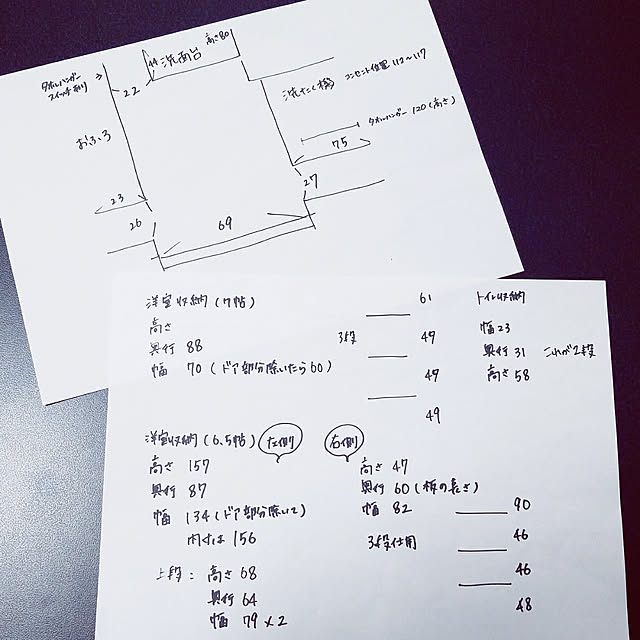 高さ80
44
洗面台
タオルハンガー
スイッチ有り
22
洗たく機
コンセント位置 112〜117
おふろ
タオルハンガー 120(高さ)
75
23
27
26
69
洋室収納(7帖)
高さ
奥行 88
幅 70(ドア部分除いたら60)
3段
61
49
49
49
トイレ収納
幅 23
奥行 31
高さ 58
これが2段
洋室収納(6.5帖)
左側
高さ 157
奥行 87
幅 134(ドア部分除いて)
内寸は 156
上段: 高さ 68
奥行 64
幅 79 × 2
右側
高さ 47
奥行 60(板の長さ)
幅 82
3段仕用
90
46
46
48